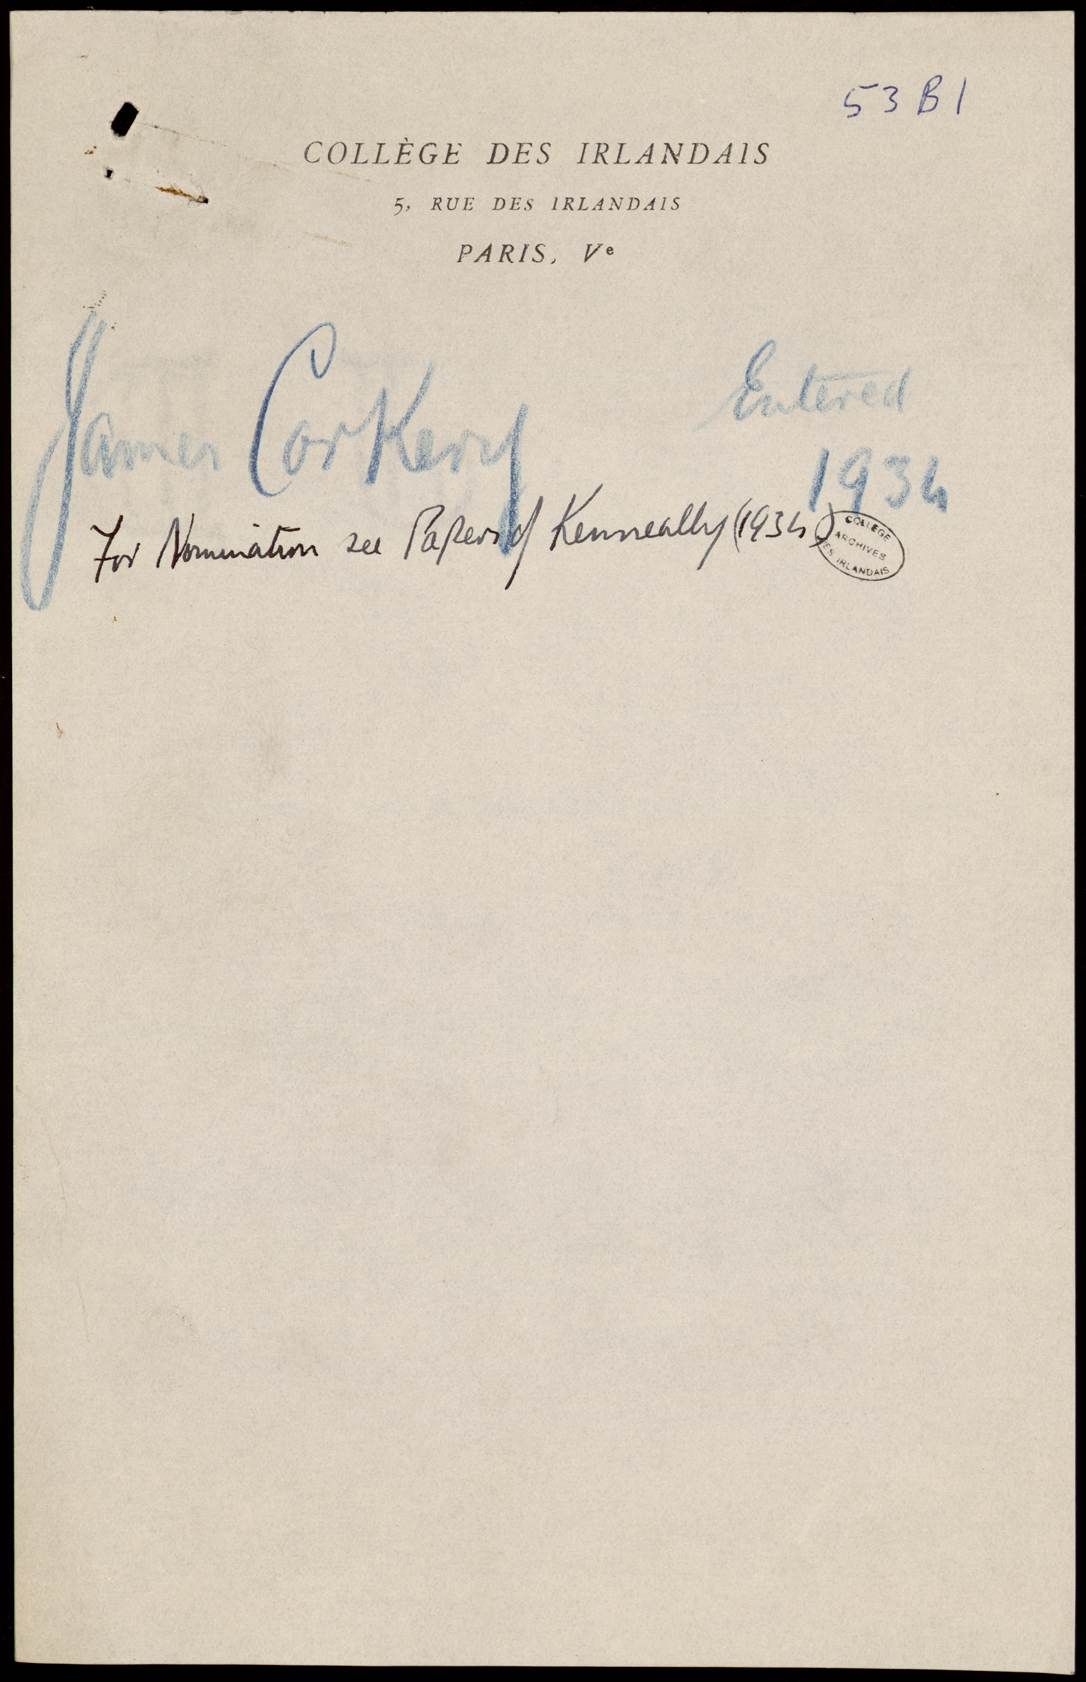 53 B 1
COLLÈGE DES IRLANDAIS
5, RUE DES IRLANDAIS
PARIS, Ve
James Corkery
Entered
1934
For Nomination see Papers of Kenneally (1934)
COLLEGE
ARCHIVES
DES IRLANDAIS